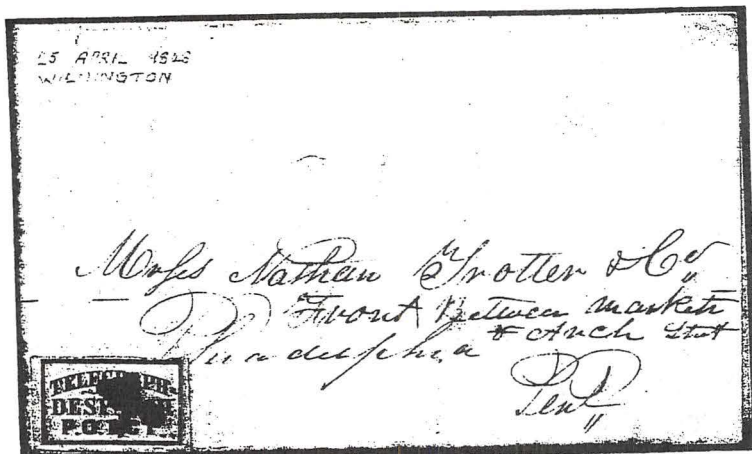 25 APRIL
WILMINGTON
Messs Nathan Trotter & Co
Front Between market
& Arch Street
Philadelphia
Pena
TELEGRAPH
P.O.